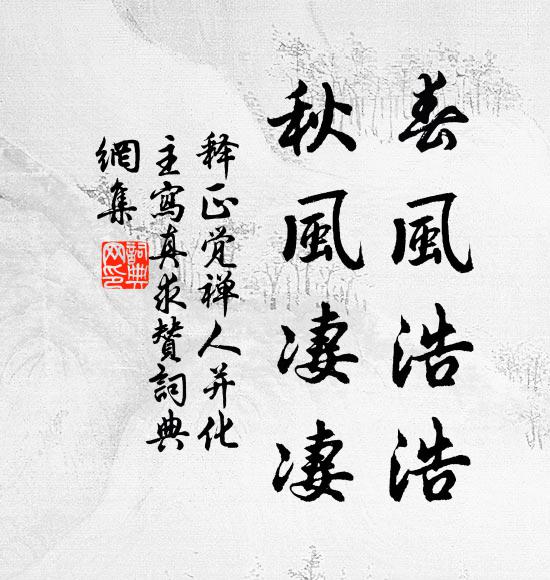 春風浩浩
秋風凄凄
释正觉禅人并化
主寫真求贊詞典
網集
詞典网印